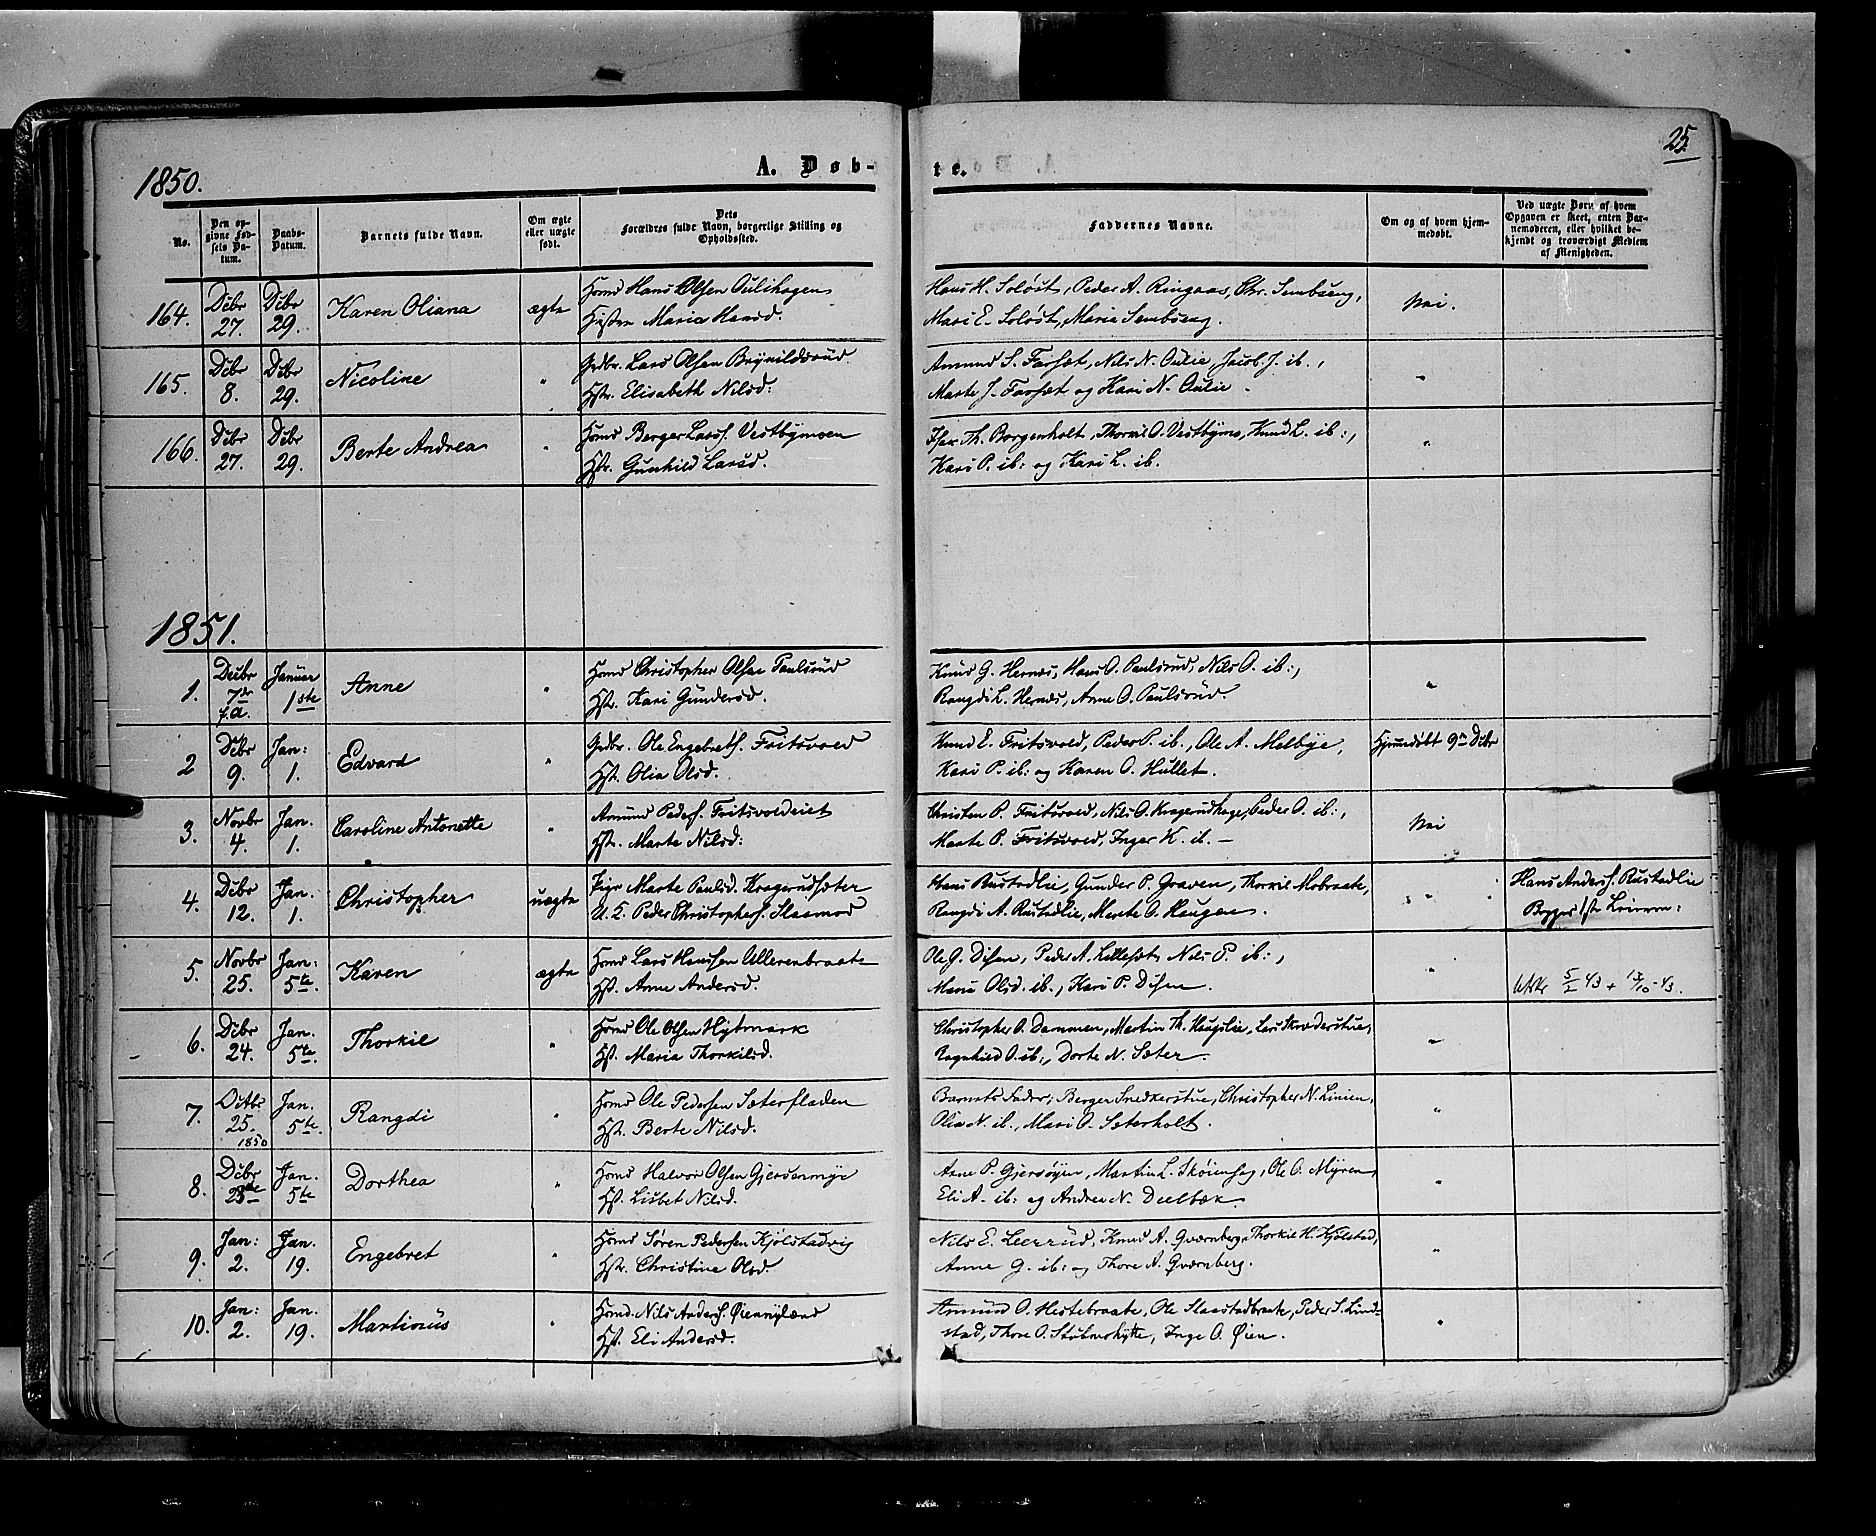 25.
1850.
A. Døb-
te.
No.
Den opgivne Fødsels Datum.
Daabs-Datum.
Barnets fulde Navn.
Om ægte eller uægte født.
Dets Forældres fulde Navn, borgerlige Stilling og Opholdssted.
Faddernes Navne.
Om og af hvem hjemmedøbt.
Ved uægte Børn af hvem Opgaven er skeet, enten Barnemoderen, eller hvilket bekjendt og troværdigt Medlem af Menigheden.
164. Dcbr 27. Dcbr 29. Karen Oliana ægte
Hans Olsen Oulihagen
Maria Hansd.
Hans H. Soløst, Peder A. Ringaas, Chr. Sembseng,
Mari E. Soløst, Maria Sembseng.
Nei.
165. Dcbr 8. Dcbr 29. Nicoline "
Grdbr. Lars Olsen Brynildsrud
Hstr. Elisabeth Nilsd.
Amund S. Farsæt, Nils N. Oulie, Jacob J. ib.,
Marte J. Farsæt og Kari N. Oulie.
"
166. Dcbr 27. Dcbr 29. Berte Andrea "
Hsmd Berger Larss. Vestbymoen
Hstr. Gunhild Larsd.
Th. Borgenholt, Thorkil O. Vestbymo, Knud L. ib:,
Kari P. ib: og Kari L. ib.
"
1851.
1. Dcbr 7de f.a. Januar 1ste Anne "
Hsmd Christopher Olsen Paulsrud
Hstr. Kari Gundersd.
Knud G. Hernæs, Hans O. Paulsrud, Nils O. ib:,
Rangdi L. Hernæs, Anne O. Paulsrud.
"
2 Dcbr 9. Jan: 1. Edvard "
Grdbr. Ole Engebrets. Fritsvold
Hst. Olia Olsd.
Knud E. Fritsvold, Peder P. ib., Ole A. Melbye,
Kari P. ib: og Karen O. Hullet.
Hjemdøbt 9de Dcbr
3. Novbr 4. Jan. 1. Caroline Antonette "
Amund Peders. Fritsvoldeiet
Hstr. Marte Nilsd:
Christen P. Fritsvold, Nils O. Kragerudhage, Peder O. ib:,
Marte P. Fritsvold, Inger K. ib. –
Nei
4. Dcbr 12. Jan: 1. Christopher uægte
Pige Marte Paulsd. Kragerudsæter
U. K. Peder Christophers. Slaamod
Hans Rustadlie, Gunder P. Graven, Thorkil Mobraate,
Rangdi A. Rustadlie, Marte O. Haugen.
"
Hans Anders. Rustadlie
5. Novbr 25. Jan: 5te. Karen ægte
Hsmd Lars Hansen Ullerenbraate
Hst. Anne Andersd.
Ole G. Disen, Peder A. Lillesæt, Nils P. ib:,
Maria Olsd. ib., Kari P. Disen.
"
5/2 43 + 13/10-43.
6. Dcbr 24. Jan. 5te. Thorkil "
Hsmd Ole Olsen Nytmark
Hst. Maria Thorkilsd.
Christopher O. Dammen, Martin Th. Haugslie, Lars Skræderstue,
Ragnhild O. ib:, Dorte N. Sæter.
"
7. Octbr 25. 1850 Jan. 5te. Rangdi "
Hsmd Ole Pedersen Sæterfladen
Hst. Berte Nilsd.
Barnets Fader, Berger Snedkerstue, Christopher N. Linien,
Olia N. ib., Mari O. Sæterholt.
"
8. Dcbr Jan. 5te Dorthea "
Hsmd Halvor Olsen Gjersøenmyr
Hst. Lisbet Nilsd.
Arne P. Gjersøyen, Martin L. Skøienhag, Ole O. Myren,
Eli A. ib: og Andrea N. Deelbæk.
"
9. Jan: 2. Jan. 19. Engebret "
Hsmd Søren Pedersen Kjølstadvig
Hstr. Christine Olsd.
Nils E. Leerrud, Knud A. Qværnberg, Thorkil H. Kjølstad,
Anne G. ib: og Thore A. Qværnberg.
"
10. Jan: 2. Jan. 19. Martinus "
Hsmd. Nils Anders. Øiennyland
Hst. Eli Andersd.
Amund O. Hestebraate, Ole Slaastadbraate, Peder S. Lind=
stad, Thore O. Stubmohytte, Inge O. Øien.
"